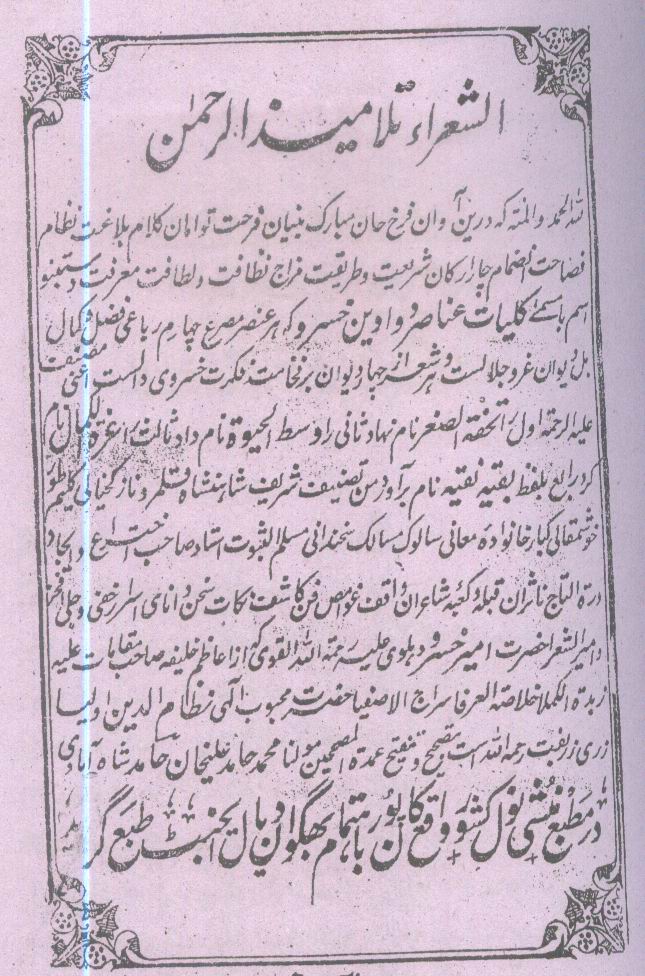 الشعراء تلامیذ الرحمٰن
للہ الحمد والمنۃ کہ درین آوان فرخ جان مبارک بنیان فرحت توامان کلام بلاغت نظام
فصاحت انضمام چار ارکان شریعت وطریقت مزاج نظافت ولطافت معرفت دستنبو
اسم باسمے کلیات عناصر دواوین خسرو کہ ہر عنصر مصرع چہارم رباعی فضل و کمال
بل دیوان عز و جلالست و ہر شعر از چہار دیوان برخاست فکرت خسروی دالست اعنی مصنف
علیہ الرحمۃ اول را تحفۃ الصغر نام نہاد ثانی را وسط الحیوۃ نام داد ثالث را غرۃ الکمال نام
کرد رابع بلفظ بقیہ نقیہ نام برآورد من تصنیف شریف شاہنشاہ قلمرو نازکخیالی کلیم طور
خوشمقالی کبار خانوادہ معانی سالوک مسالک سخندانی مسلم الثبوت استاد صاحب اختراع و ایجاد
درۃ التاج ناثران قبلہ و کعبہ شاعران واقف غوامص فن کاشف نکات سخن دانای اسرار خفی و جلی
امیر الشعرا حضرت امیر خسرو دہلوی علیہ رحمۃ اللہ القوی کہ از اعاظم خلیفہ صاحب مقامات علیہ
زبدۃ الکملا خلاصۃ العرفا سراج الاصفیا حضرت محبوب الٰہی نظام الدین اولیا
زری زربفت رحمہ اللہ است بتصحیح و تنقیح عمدۃ المصححین مولانا محمد حامد علیخان حامد شاہ آبادی
در مطبع منشی نول کشور واقع کانپور باہتمام بھگواندیال ایجنٹ طبع گر